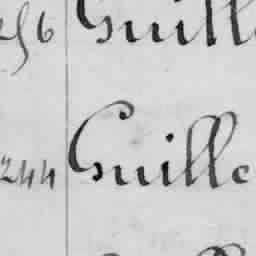 256 Guill
244 Guille